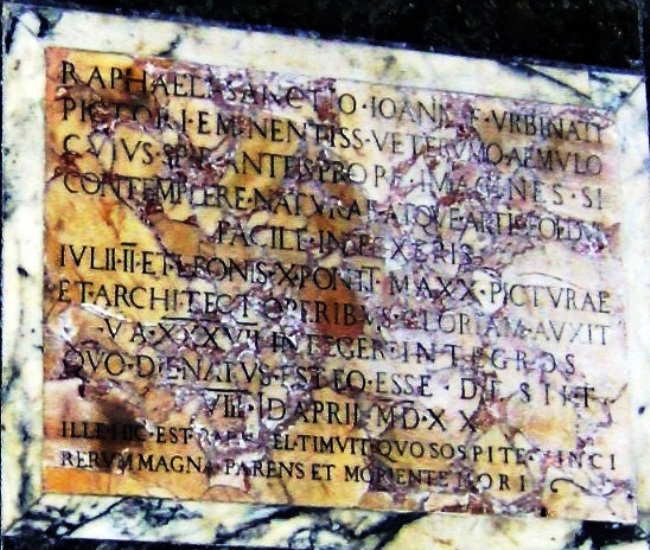 RAPHAELI·SANCTIO·IOANN·F·VRBINATI
PICTORI·EMINENTISS·VETERVMQ·AEMVLO
CVIVS·SPIRANTEIS·PROPE·IMAGINES·SI
CONTEMPLERE·NATVRAE·ATQVE·ARTIS·FOEDVS
FACILE·INSPEXERIS
IVLII·II·ET·LEONIS·X·PONTT·MAXX·PICTVRAE
ET·ARCHITECT·OPERIBVS·GLORIAM·AVXIT
V·A·XXXVII·INTEGER·INTEGROS
QVO·DIE·NATVS·EST·EO·ESSE·DESIIT
VIII·ID·APRIL·MDXX
ILLE·HIC·EST·RAPHAEL·TIMVIT·QVO·SOSPITE·VINCI
RERVM·MAGNA·PARENS·ET·MORIENTE·MORI